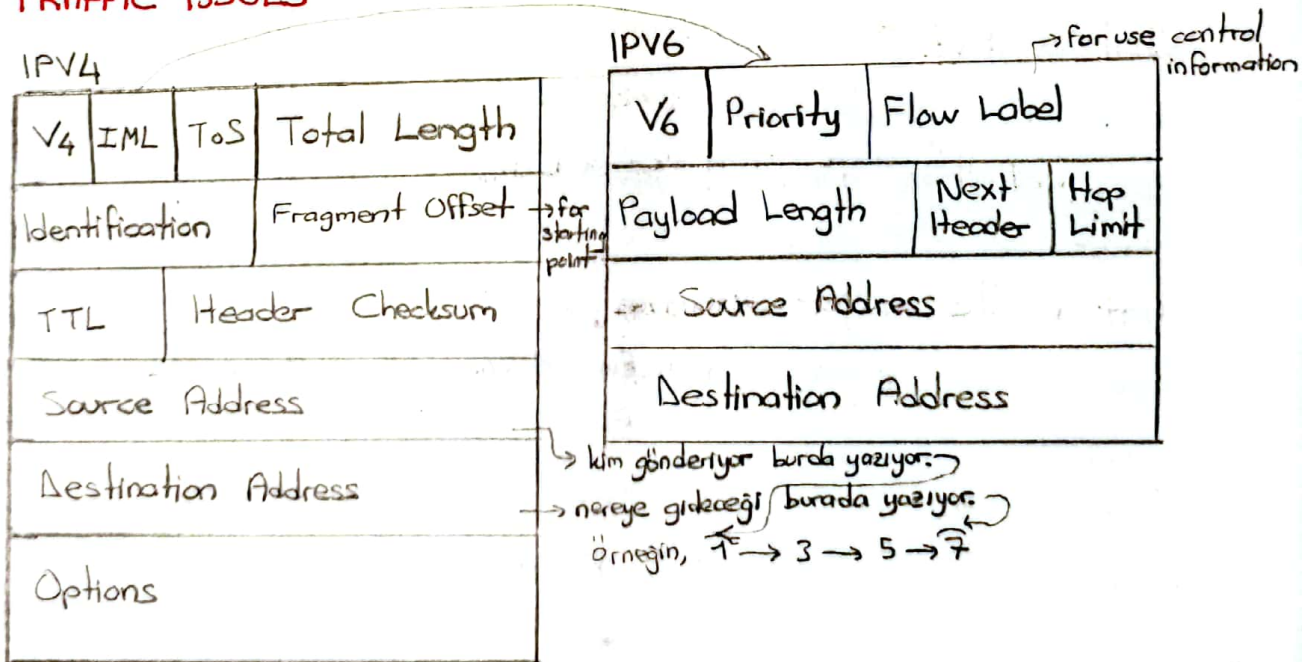 TRAFFIC ISSUES
IPV4
V4 IML ToS Total Length
Identification Fragment Offset → for starting point
TTL Header Checksum
Source Address
Destination Address
Options
IPV6
→ for use control
information
V6 Priority Flow Label
Payload Length Next Header Hop Limit
Source Address
Destination Address
→ kim gönderiyor burda yazıyor.
→ nereye gideceği burada yazıyor.
Örneğin, 1 → 3 → 5 → 7